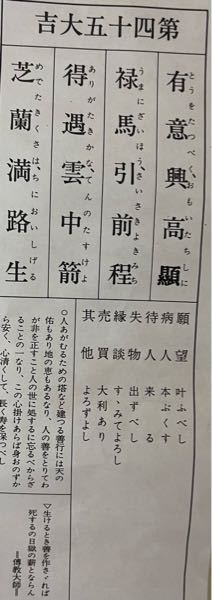 第四十五大吉
有意興高顯
とうをたつべく、おもいたちしに
禄馬引前程
うまにざいほう、さいさきよきみち
得遇雲中箭
ありがたきかな、てんのたすけよ
芝蘭満路生
めでたきくさは、ちにおいしげる
願望 叶ふべし
病人 本ぷくす
待人 来る
失物 出ずべし
縁談 す、みてよろし
売買 大利あり
其他 よろずよし
○人あがむるための塔など建つる善行には天の
佑もあり地の恵もあるなり、人の善をとりてわ
が非を正すこと人の世に処するに忘るべからざ
ることの一なり、この心掛けあらば身おのずか
ら安く、心清くして、長く寿を保つべし
▽生けるとき善を作さゞれば
死するの日獄の薪とならん
=傳教大師=